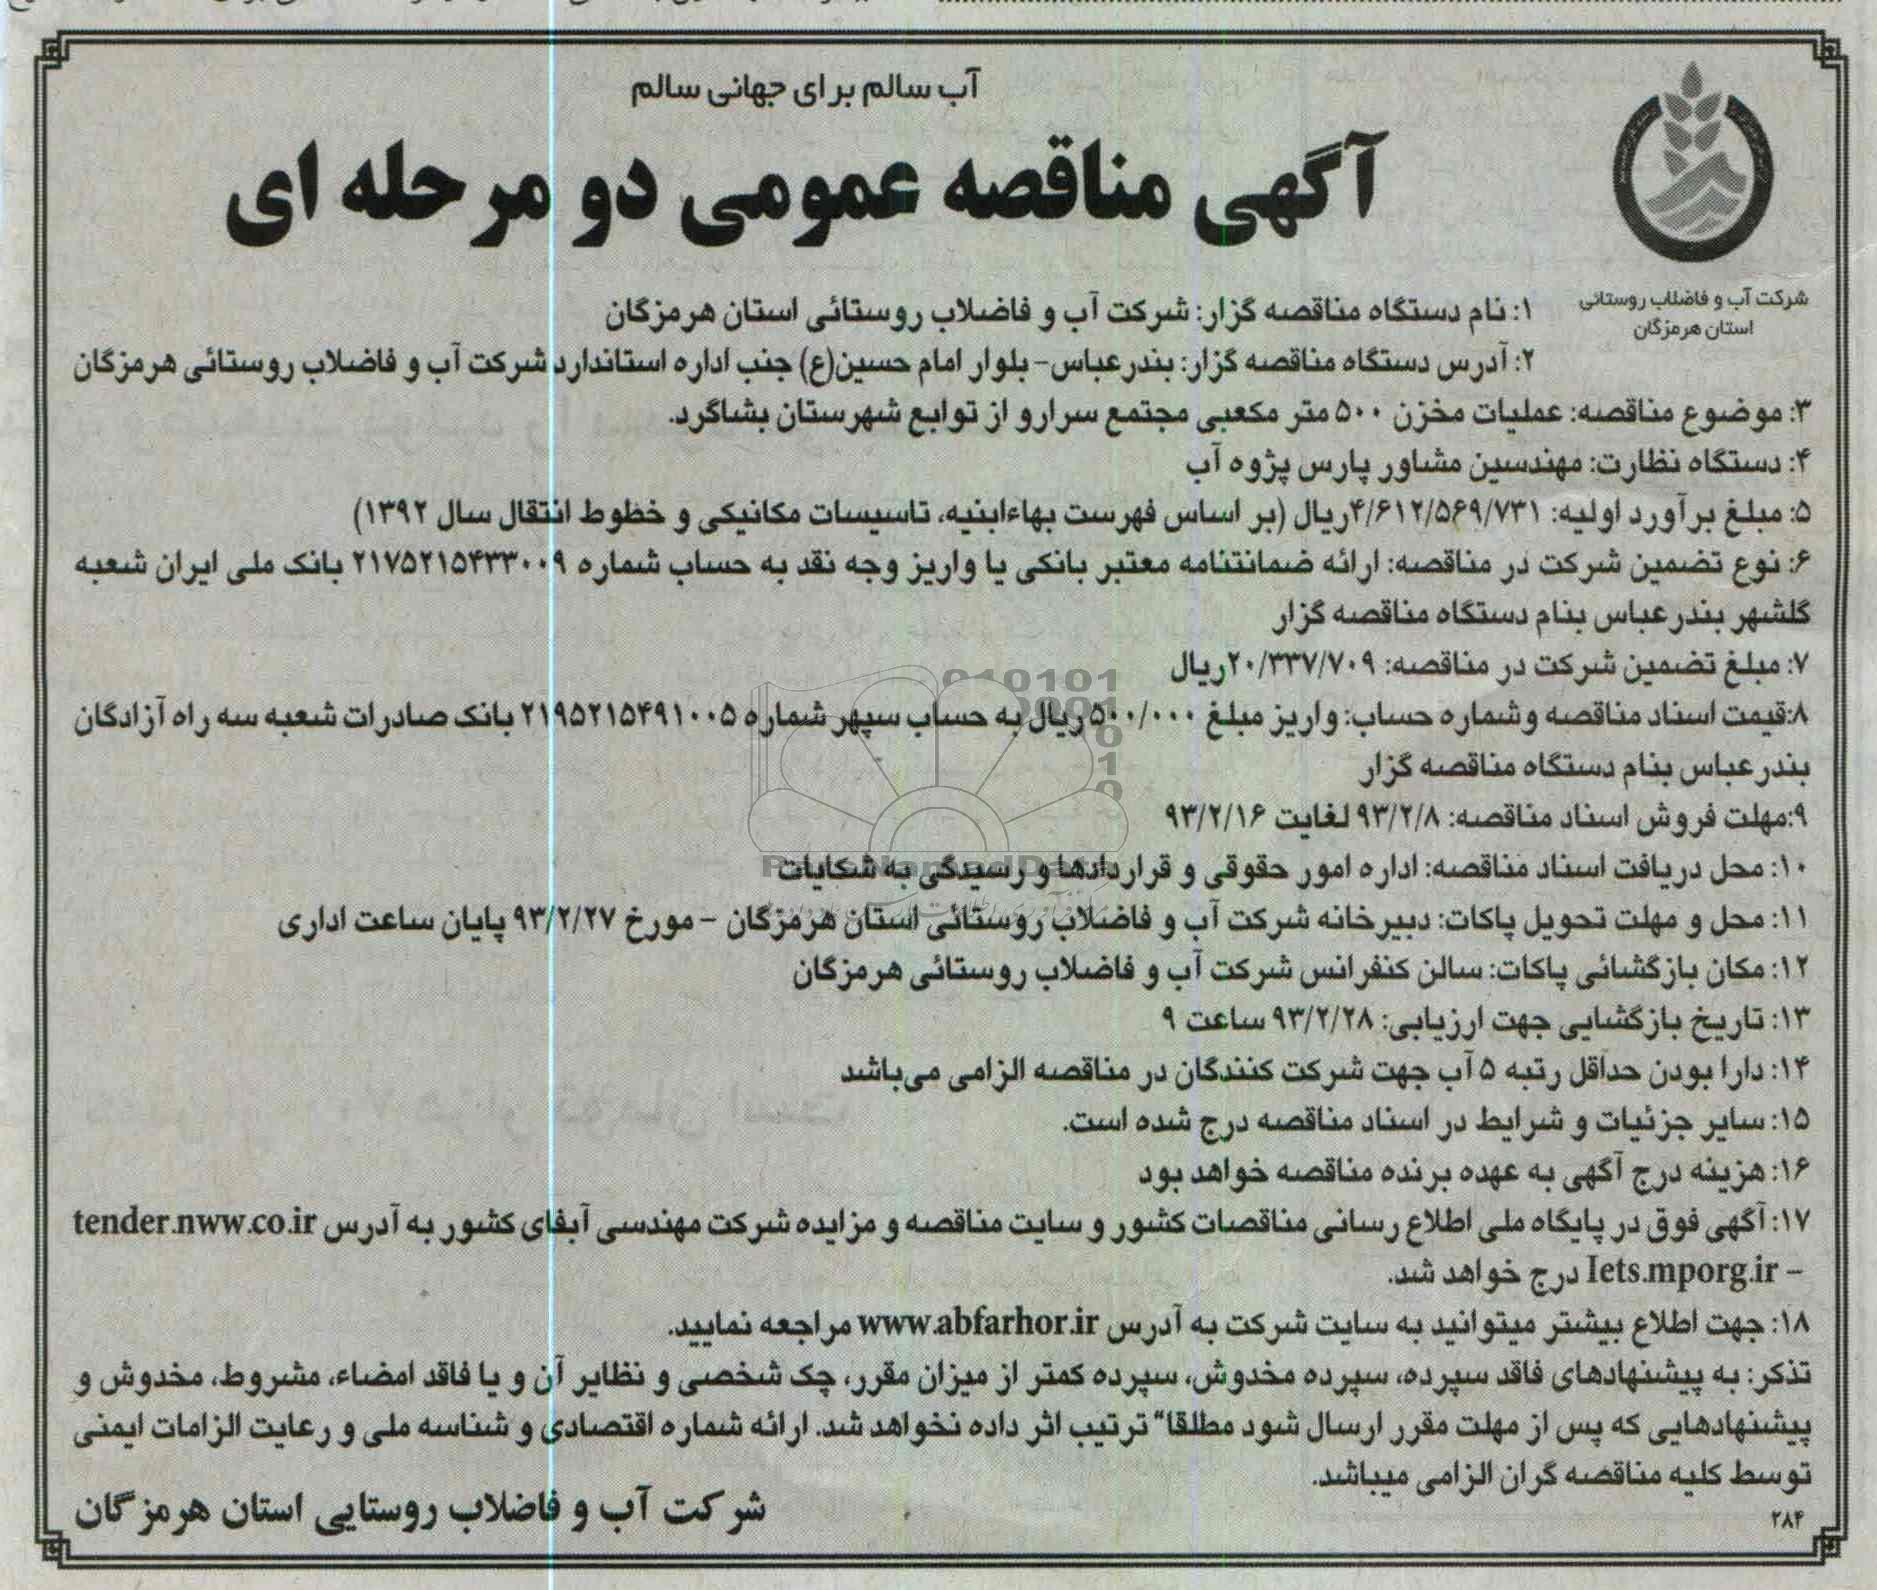 آب سالم برای جهانی سالم
آگهی مناقصه عمومی دو مرحله ای
شرکت آب و فاضلاب روستائی
استان هرمزگان
۱: نام دستگاه مناقصه گزار: شرکت آب و فاضلاب روستائی استان هرمزگان
۲: آدرس دستگاه مناقصه گزار: بندرعباس- بلوار امام حسین(ع) جنب اداره استاندارد شرکت آب و فاضلاب روستائی هرمزگان
۳: موضوع مناقصه: عملیات مخزن ۵۰۰ متر مکعبی مجتمع سرارو از توابع شهرستان بشاگرد.
۴: دستگاه نظارت: مهندسین مشاور پارس پژوه آب
۵: مبلغ برآورد اولیه: ۴/۶۱۲/۵۶۹/۷۳۱ریال (بر اساس فهرست بهاءابنیه، تاسیسات مکانیکی و خطوط انتقال سال ۱۳۹۲)
۶: نوع تضمین شرکت در مناقصه: ارائه ضمانتنامه معتبر بانکی یا واریز وجه نقد به حساب شماره ۲۱۷۵۲۱۵۴۳۳۰۰۹ بانک ملی ایران شعبه
گلشهر بندرعباس بنام دستگاه مناقصه گزار
۷: مبلغ تضمین شرکت در مناقصه: ۲۰/۳۳۷/۷۰۹ریال
۸:قیمت اسناد مناقصه وشماره حساب: واریز مبلغ ۵۰۰/۰۰۰ریال به حساب سپهر شماره ۲۱۹۵۲۱۵۴۹۱۰۰۵ بانک صادرات شعبه سه راه آزادگان
بندرعباس بنام دستگاه مناقصه گزار
۹:مهلت فروش اسناد مناقصه: ۹۳/۲/۸ لغایت ۹۳/۲/۱۶
۱۰: محل دریافت اسناد مناقصه: اداره امور حقوقی و قراردادها و رسیدگی به شکایات
۱۱: محل و مهلت تحویل پاکات: دبیرخانه شرکت آب و فاضلاب روستائی استان هرمزگان - مورخ ۹۳/۲/۲۷ پایان ساعت اداری
۱۲: مکان بازگشائی پاکات: سالن کنفرانس شرکت آب و فاضلاب روستائی هرمزگان
۱۳: تاریخ بازگشایی جهت ارزیابی: ۹۳/۲/۲۸ ساعت ۹
۱۴: دارا بودن حداقل رتبه ۵ آب جهت شرکت کنندگان در مناقصه الزامی می‌باشد
۱۵: سایر جزئیات و شرایط در اسناد مناقصه درج شده است.
۱۶: هزینه درج آگهی به عهده برنده مناقصه خواهد بود
۱۷: آگهی فوق در پایگاه ملی اطلاع رسانی مناقصات کشور و سایت مناقصه و مزایده شرکت مهندسی آبفای کشور به آدرس tender.nww.co.ir
– Iets.mporg.ir درج خواهد شد.
۱۸: جهت اطلاع بیشتر میتوانید به سایت شرکت به آدرس www.abfarhor.ir مراجعه نمایید.
تذکر: به پیشنهادهای فاقد سپرده، سپرده مخدوش، سپرده کمتر از میزان مقرر، چک شخصی و نظایر آن و یا فاقد امضاء، مشروط، مخدوش و
پیشنهادهایی که پس از مهلت مقرر ارسال شود مطلقا" ترتیب اثر داده نخواهد شد. ارائه شماره اقتصادی و شناسه ملی و رعایت الزامات ایمنی
توسط کلیه مناقصه گران الزامی میباشد.
شرکت آب و فاضلاب روستایی استان هرمزگان
۲۸۴